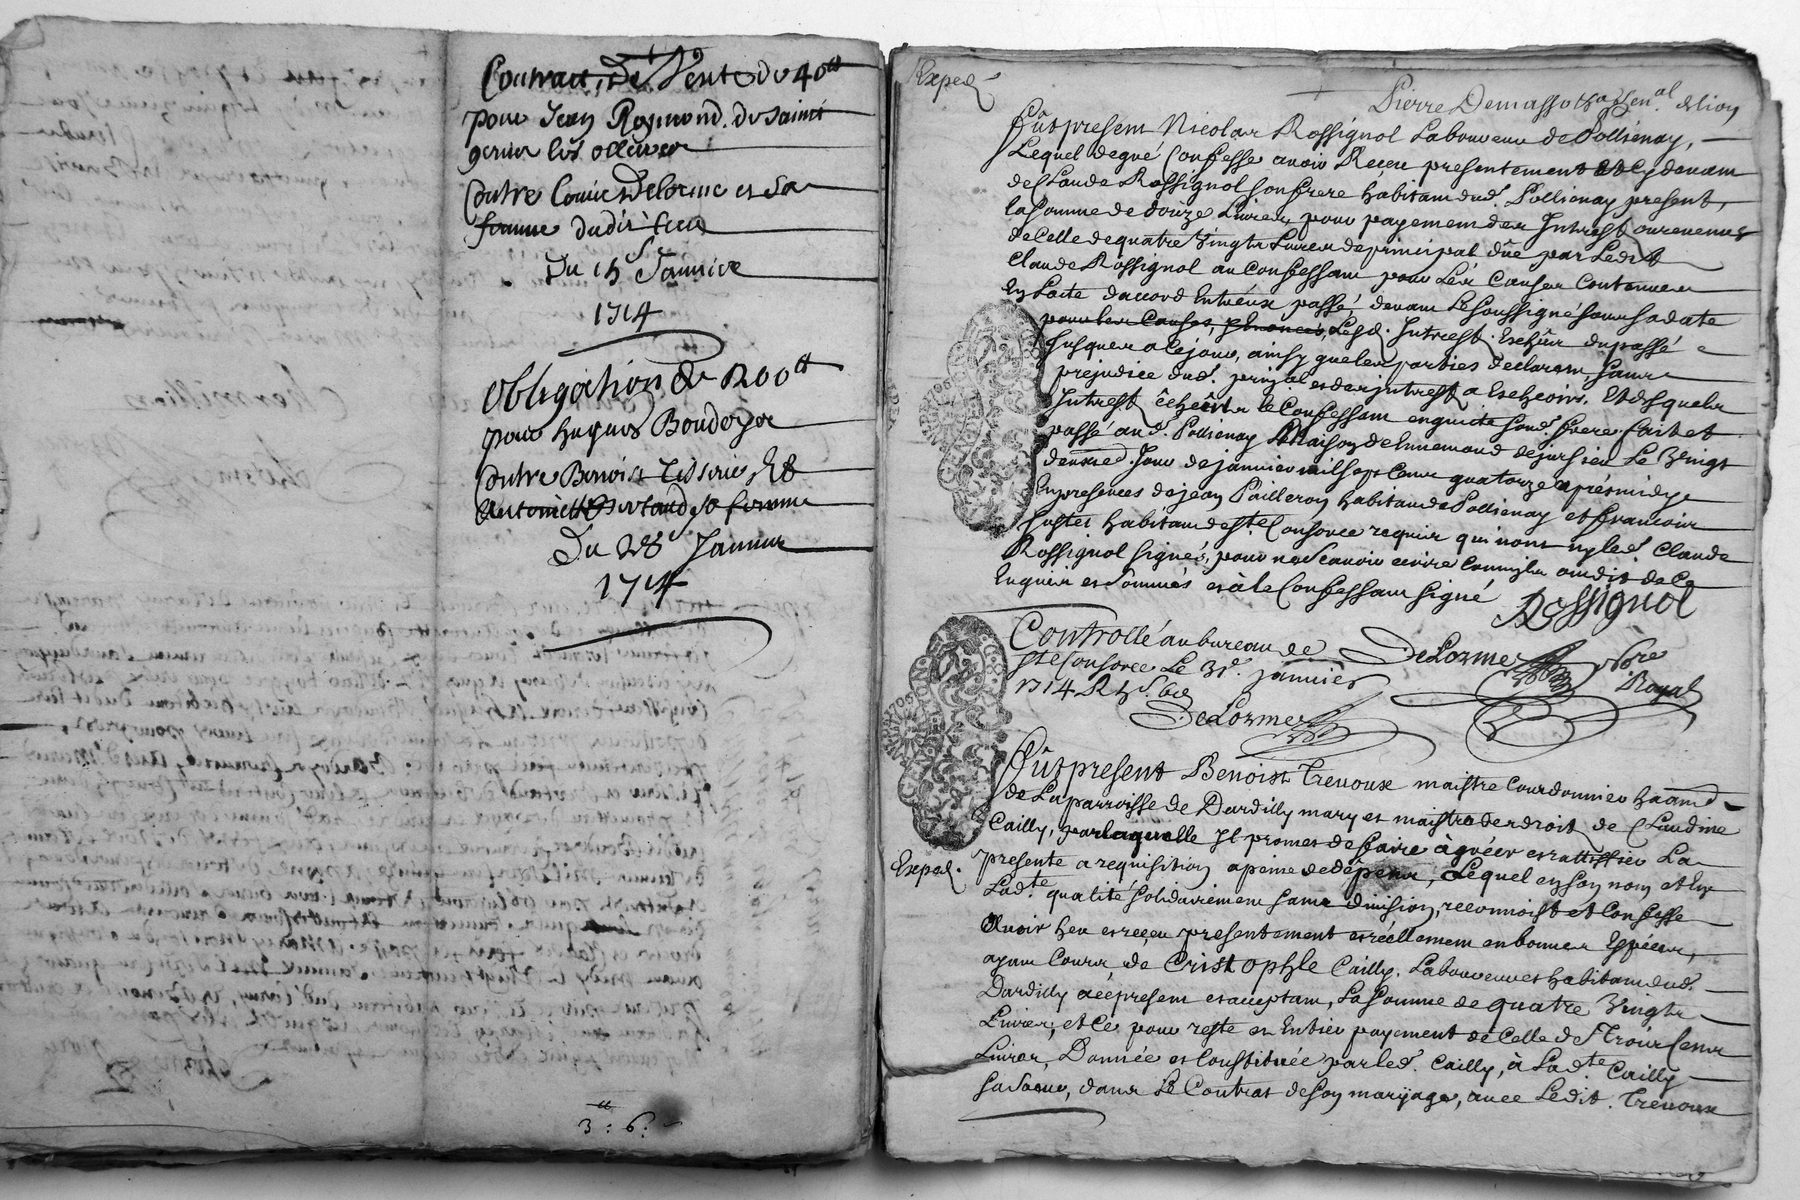 Contract de Vente de 40ᵗᵗ
pour Jean Raymond de Saint
genis les ollieres
Contre Louis Delorme et Sa
femme dudit lieu
Du 15ᵉ Janvier
1714
Obligation de 200ᵗᵗ
pour hugues Boudoy
Contre Benoist Tisseur Et
Antoinette Bertaud sa femme
Du 28ᵉ Janvier
1714
3 : 6 :
Exped.
Pierre Demasso
fût present Nicolas Rossignol Laboureur de Pollienay,
Lequel de gré Confesse avoir Receu presentement et cy devant
de Claude Rossignol son frere habitant dud. Pollienay present,
la somme de douze Livres, pour payement des Intrest ou revenus
de Celle de quatre vingts Livres de principal dûe par Ledit
Claude Rossignol au Confessant pour Les Causes Contenues
En Lacte daccord Entreux passé, devant Le soussigné sous sa date
pour les Causes, Lesd. Intrest Escheus du passé
Jusques a ce jour, ainsy que les parties declarent sans
prejudice dud. prinpal et des jntrest a Escheoir. Et desquels
Intrest écheus le Confessant en quitte sond. frere fait et
passé aud. Pollienay Maison de Ennemond dejursieu Le Vingt
deuxie. Jour de janvier mil sept Cent quatorze aprés midy
En presences de jean Pailleron habitant de Pollienay et francois
Justet habitant de Ste Consorce requis qui nont ny led. Claude
Rossignol signés, pour ne Scavoir ecrire Comme ils ont dit de ce
Enquis et sommés et à le Confessant signé
Rossignol
Controllé au bureau de
Ste Consorce Le 31ᵉ. janvier
1714 R
DeLorme
DeLorme
Nore
Royal
fût present Benoist Trenoux maistre Courdonnier habitand
de La parroisse de Dardilly mary et maistre des droit de Claudine
Cailly, par laquelle Jl promet de faire àgréer et rattiffier La
Exped.
presente a requisition a peine de dêpens, Lequel en son nom, et En
Ladte. qualité solidairement sans division, reconnoist et Confesse
Avoir heu et receu presentement et réellement en bonnes Espéces,
ayant Cours, de Cristophle Cailly, Laboureur et habitant dud.
Dardilly àce present et acceptant, La somme de quatre Vingts
Livres, et Ce, pour reste et Entier payement de Celle de Trois Cent
Livres, Donnée et Constituée par led. Cailly, à Ladte. Cailly
sa soeur, dans Le Contrat de son marijage, avec Ledit. Trenoux